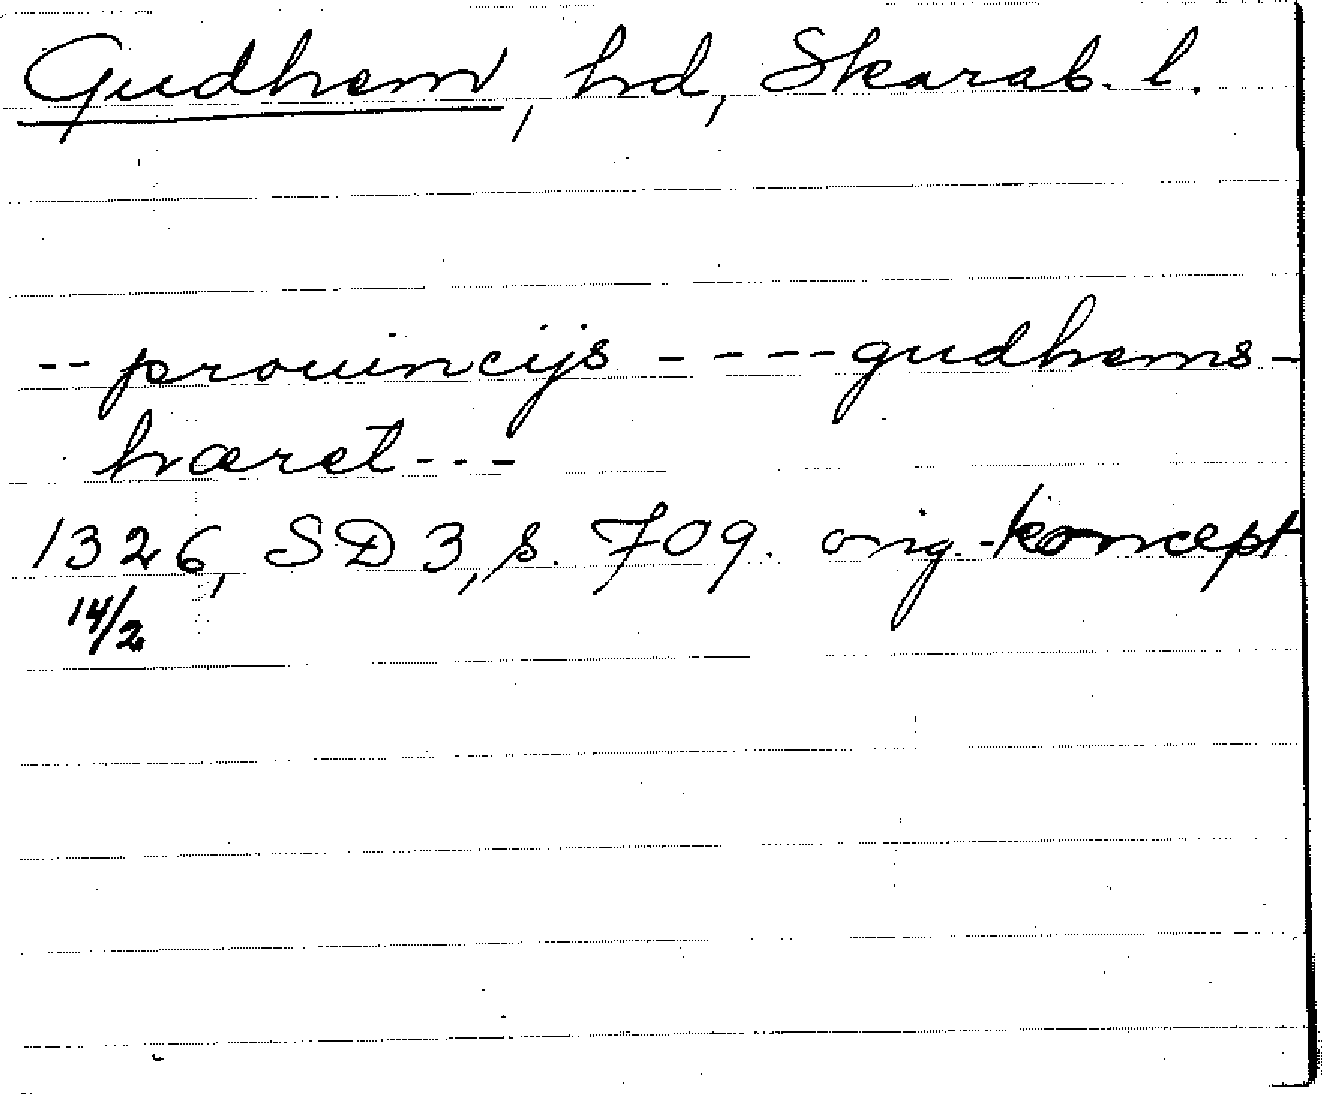 Gudhem, hd, Skarab. l.
-- prouincijs ---- gudhems-
hæret ---
1326, SD 3, s. 709. orig.-koncept
14/2